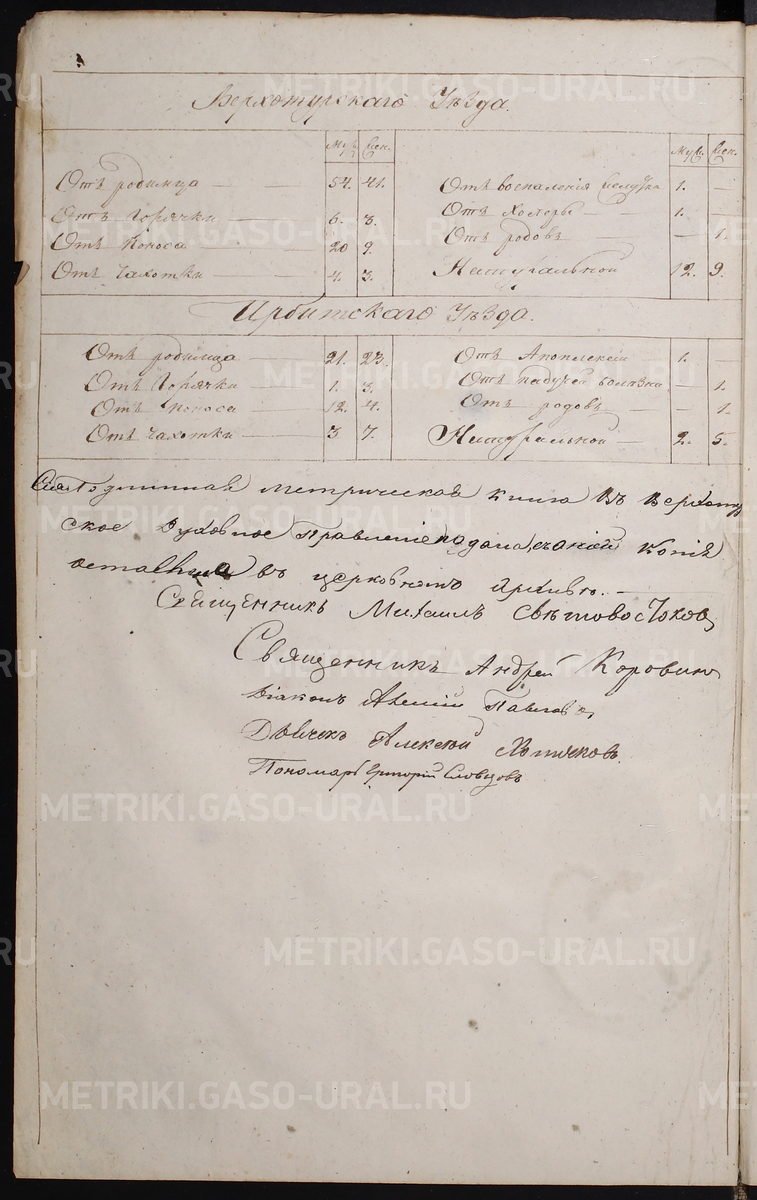 Верхотурскаго Уѣзда.
Муж. Жен. Муж. Жен.
Отъ родимца 54. 41. Отъ воспаленія желудка 1. —
Отъ горячки 6. 8. Отъ 1. —
Отъ поноса 20 9. Отъ родовъ — 1.
Отъ чахотки 4. 3. Натуральной 12. 9.
Ирбитскаго Уѣзда.
Отъ родимца 21. 23. Отъ Апоплексіи 1. —
Отъ горячки 1. 3. Отъ падучей болѣзни — 1.
Отъ поноса 12. 4. Отъ родовъ — 1.
Отъ чахотки 3 7. Натуральной 2. 5.
Сія Подлинная метрическая книга въ Верхотур
ское Духовное Правленіе подана, съ оной копія
оставлена въ церковномъ Архивѣ. —
Священникъ Михаилъ Свѣтовостоковъ
Священникъ Андрей Коровинъ
Діаконъ Павловъ
Дьячекъ Алексѣй
Пономарь Григорій Словцовъ
METRIKI.GASO-URAL.RU